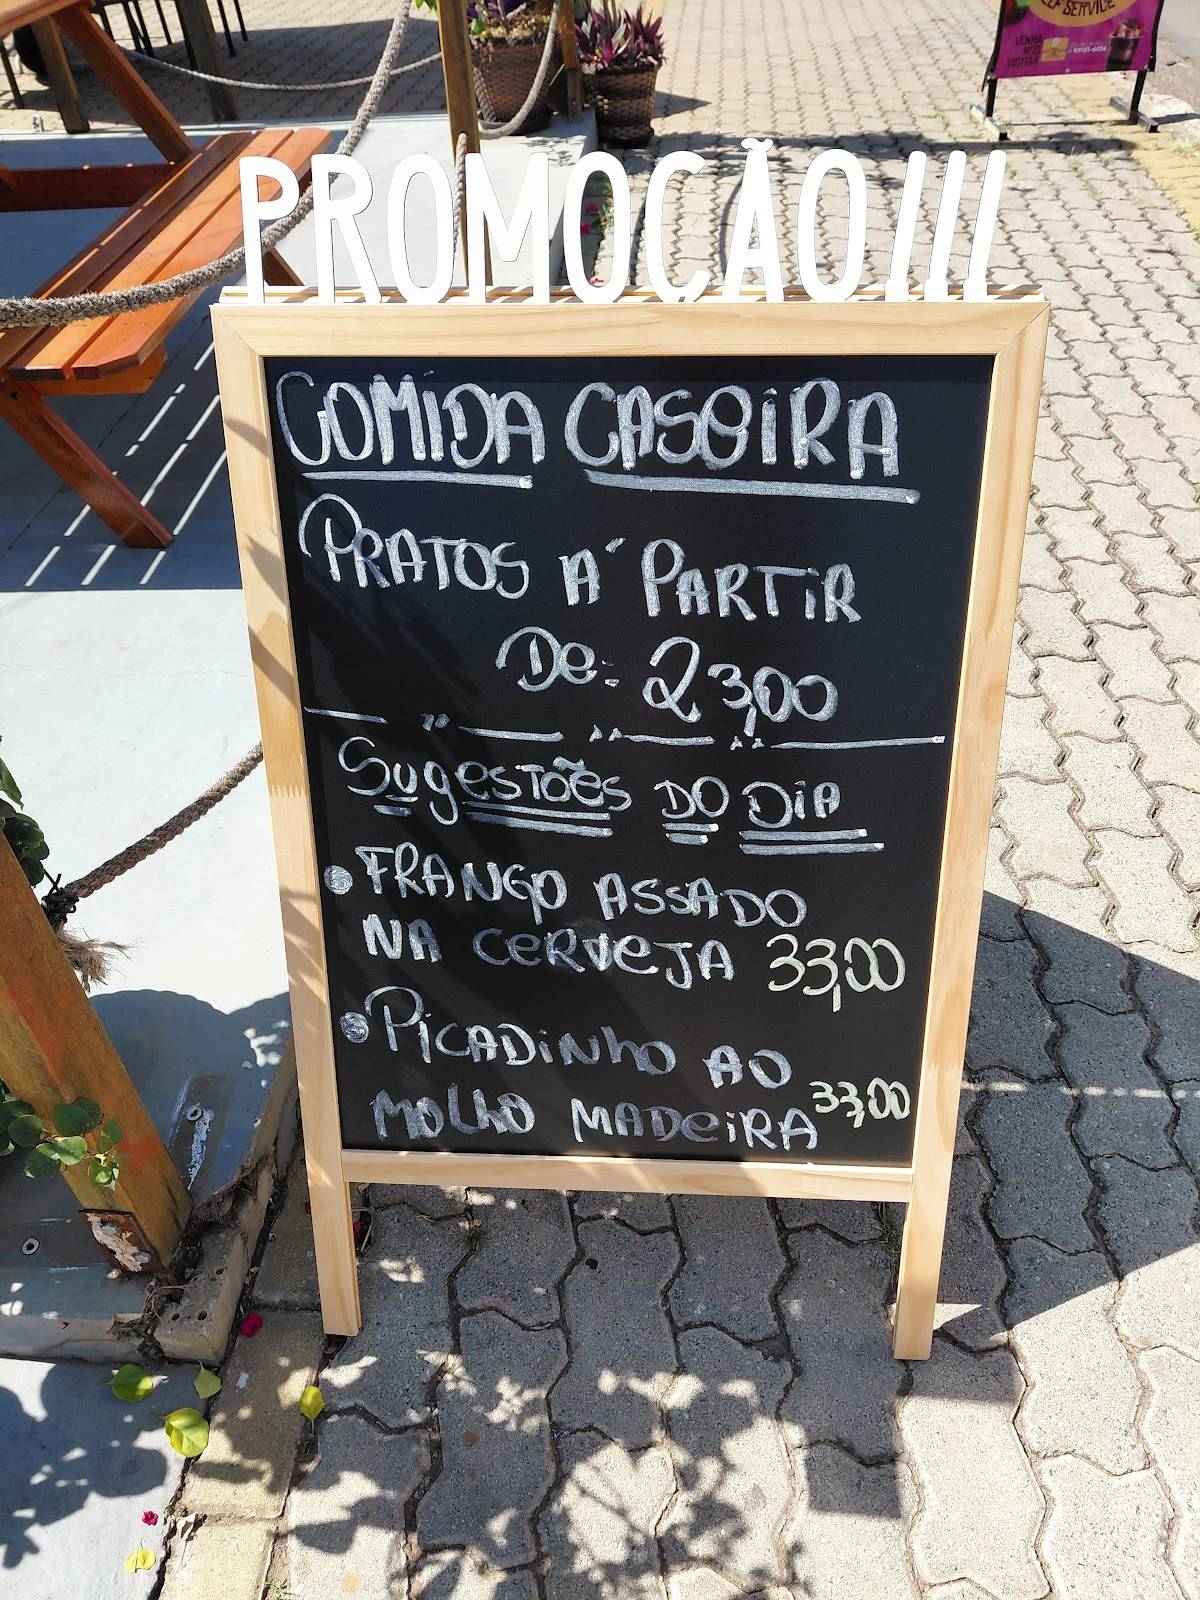 SELF SERVICE
VENHA
NOS
VISITAR
PROMOÇÃO!!!
COMIDA CASEIRA
PRATOS A´ PARTIR
De: 23,00
SUgESTÕES DO DIA
• FRANGO ASSADO
NA CERVEJA 33,00
• PICADINHO AO
MOLHO MADEIRA 33,00